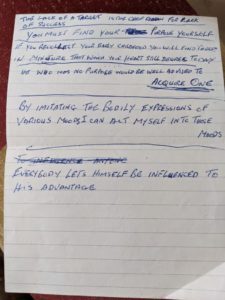 THE LACK OF A TARGET IS THE CHIEF REASON FOR LACK
OF SUCCESS
YOU MUST FIND YOUR PURPOSE YOURSELF
IF YOU RECOLLECT YOUR EARLY CHILDHOOD YOU WILL FIND THERE
IN MINIATURE THAT WHICH YOUR HEART STILL DESIRES TODAY
HE WHO HAS NO PURPOSE WOULD BE WELL ADVISED TO
ACQUIRE ONE
BY IMITATING THE BODILY EXPRESSIONS OF
VARIOUS MOODS I CAN ACT MYSELF INTO THOSE
MOODS
TO INFLUENCE ANYONE
EVERYBODY LETS HIMSELF BE INFLUENCED TO
HIS ADVANTAGE